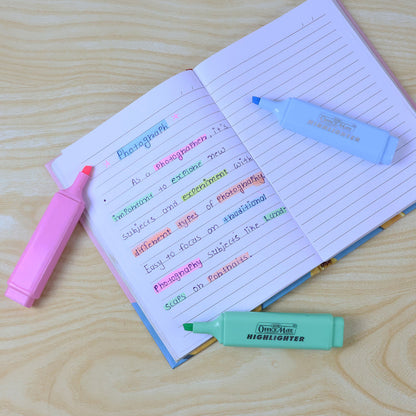 Photograph
As a photographer, it's
important to explore new
subjects and experiment with
different types of photography
Easy to focus on traditional
Photography subjects like Lands
scaps or Portraits.
OfficeMate
HIGHLIGHTER
HIGHLIGHTER